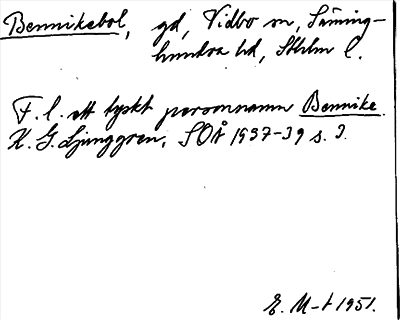 Bennikebol, gd, Vidbo sn, Seming-
hundra hd, Sthlm l.
F. l. ett tyskt personnamn Bennike.
K. G. Ljunggren, SOÅ 1937-39 s. 3.
E. M-t 1951.